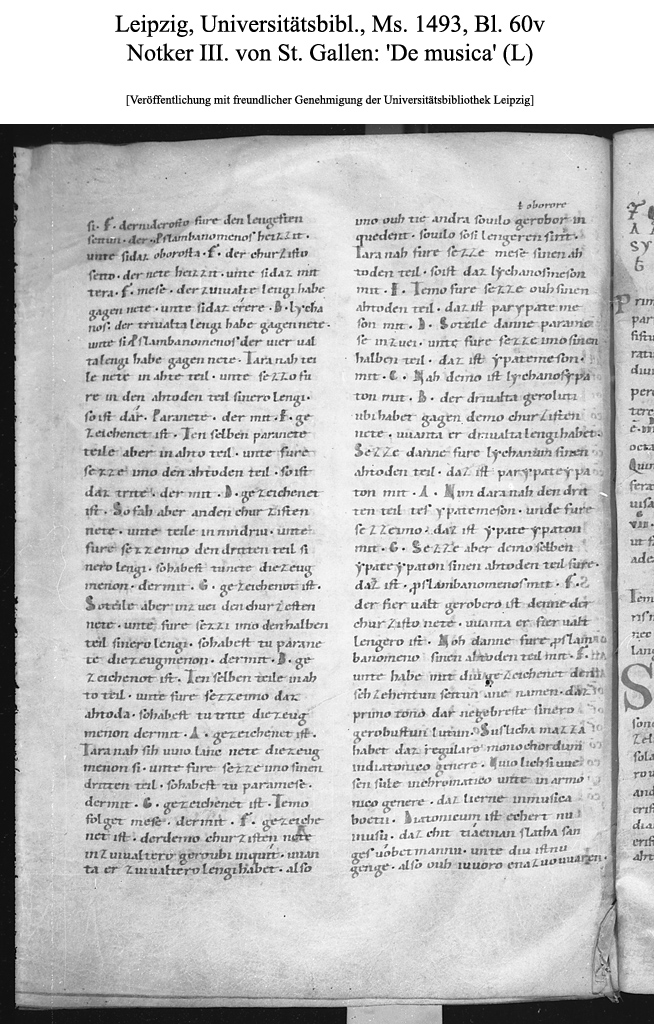 Leipzig, Universitätsbibl., Ms. 1493, Bl. 60v
Notker III. von St. Gallen: 'De musica' (L)
[Veröffentlichung mit freundlicher Genehmigung der Universitätsbibliothek Leipzig]
si · F · dernideroſto fure den lengeſten
ſeitun · der pſlambanomenoſ heizzit ·
unte ſidaz oboroſta · F · der churziſto
ſeito · der nete heizzit · unte ſidaz mit
tera · F · meſe · der zuiualte lengi habe
gagen nete · unte ſidaz erere · B · lycha
noſ · der triualta lengi habe gagen nete ·
unte ſi pſlambanomenoſ der uier ual
ta lengi habe gagen nete · Tara nah tei
le nete in ahte teil · unte ſezzo fu
re in den ahtoden teil ſinero lengi ·
ſo iſt dar · Paranete · der mit · E · ge
zeichenet iſt · Ten ſelben paranete
teile aber in ahto teil · unte fure
ſezze imo den ahtoden teil · ſo iſt
daz trite · der mit · D · gezeichenet
iſt · So fah aber an den churziſten
nete · unte teile in indriu · unte
fure ſezze imo den dritten teil ſi
nero lengi · ſohabeſt tu nete diezeug
menon · der mit · C · gezeichenot iſt ·
So teile aber in zuei den churzeſten
nete · unte fure ſezzi imo den halben
teil ſinero lengi · ſohabeſt tu parane
te diezeugmenon · der mit · B · ge
zeichenot iſt · Ten ſelben teile in ah
to teil · unte fure ſezze imo daz
ahtoda · ſohabeſt tu trite diezeug
menon der mit · A · gezeichenet iſt ·
Tara nah ſih uuo lanc nete diezeug
menon ſi · unte fure ſezze imo ſinen
dritten teil · ſohabeſt tu parameſe ·
der mit · G · gezeichenet iſt · Temo
folget meſe · der mit · F · gezeiche
net iſt · der demo churziſten nete
in zuiualtero geroubi inquit · uuan
ta er zuiualtero lengi habet · also
ł oborore
uno ouh tie andra ſouilo gerobor in
quedent · ſouilo ſoſi lengeren ſint ·
Tara nah fure ſezze meſe ſinen ah
toden teil · ſo iſt daz lychanoſmeſon
mit · E · Temo fure ſezze ouh ſinen
ahtoden teil · daz iſt parypate me
ſon mit · D · So teile danne parame
ſe in zuei · unte fure ſezze imo ſinen
halben teil · daz iſt ypatemeſon ·
mit · C · Nah demo iſt lychanoſypa
ton mit · B · der driualta geroluti
ubi habet gagen demo churziſten
nete · uuanta er driualta lengi habet ·
Sezze danne fure lychanun ſinen
ahtoden teil · daz iſt parypate ypa
ton mit · A · Nim dara nah den drit
ten teil teſ ypatemeſon · unde fure
ſezze imo · daz iſt ypate ypaton
mit · G · Sezze aber demo ſelben
ypate ypaton ſinen ahtoden teil fure ·
daz iſt · pſlambanomenoſ mit · F ·
der fier ualt gerobero iſt denne der
churziſto nete · uuanta er fier ualt
lengero iſt · Noh danne fure pſlam
banomeno ſinen ahtoden teil mit · E ·
unte habe mit diu gezeichenet den
ſehzehentun ſeitun ane namen · daz
primo tono dar negebreſte ſinero
gerobuſtun lutun · Suſlicha mazza
habet daz regulare monochordum
in diatonico genere · Vuio lichſi uue
ſen ſule in chromatico unte in armo
nico genere · daz lierne in muſica
boetii · Diatonicum iſt echert nu
in uſu · daz chit tiaeinun ſlahta ſan
geſ uobet man nu · unte diu iſt nu
genge · also ouh iu uoro ena zuo uuaren ·